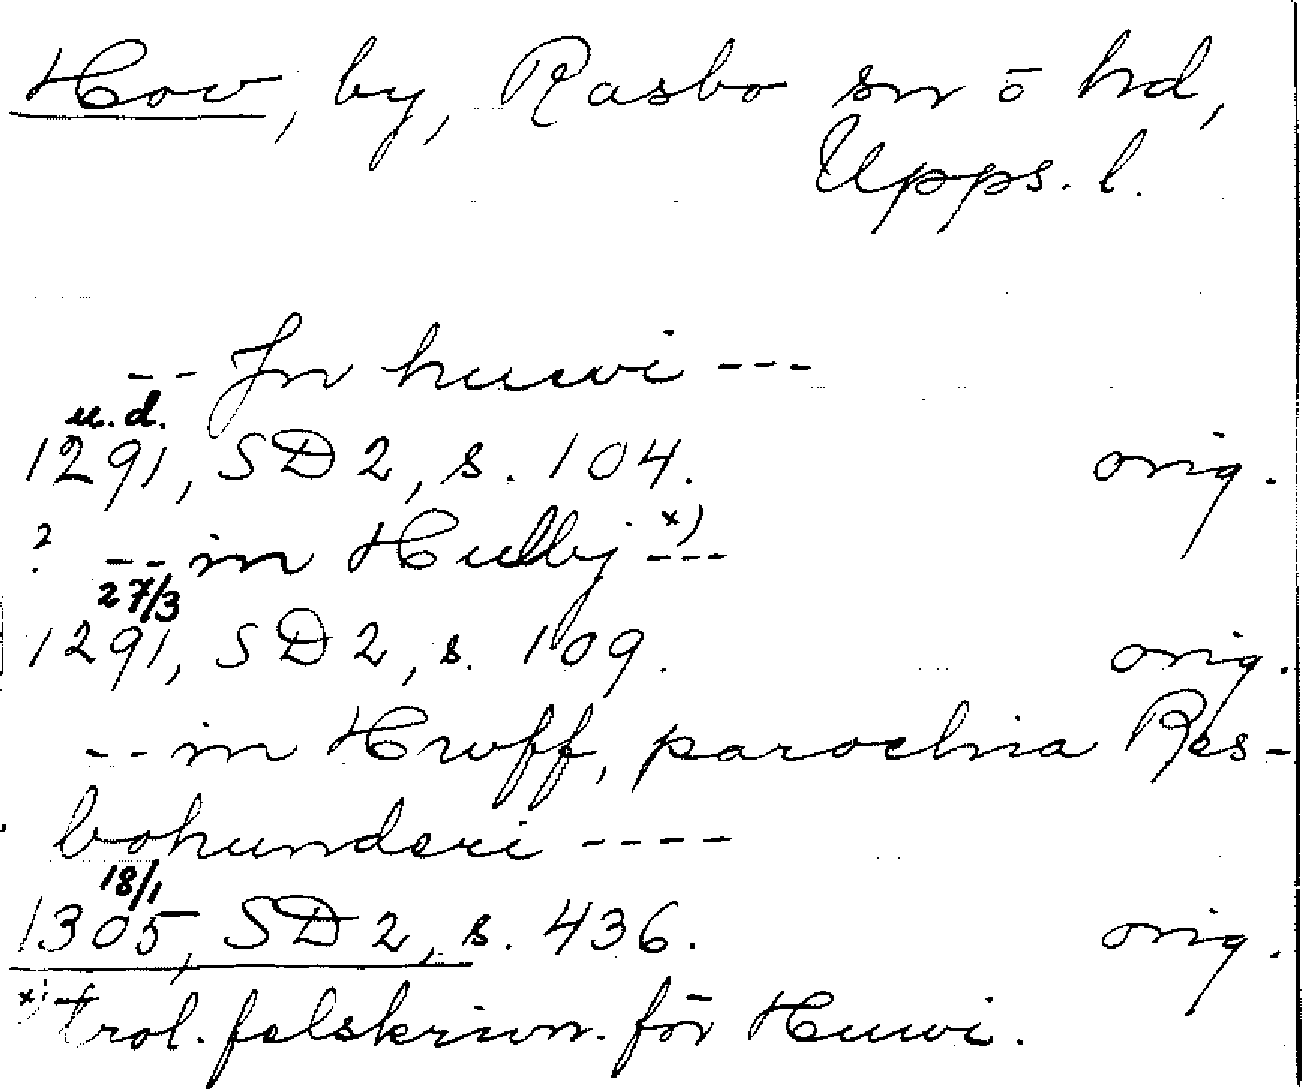 Hov, by, Rasbo sn o hd,
Upps. l.
-- Jn huwi ---
u.d.
1291, SD 2, s. 104. orig.
? -- in Hulbj x) ---
27/3
1291, SD 2, s. 109. orig.
-- in Hwff, parochia Res-
bohunderi ----
18/1
1305, SD 2, s. 436. orig.
x) trol. felskrivn. för Huwi.